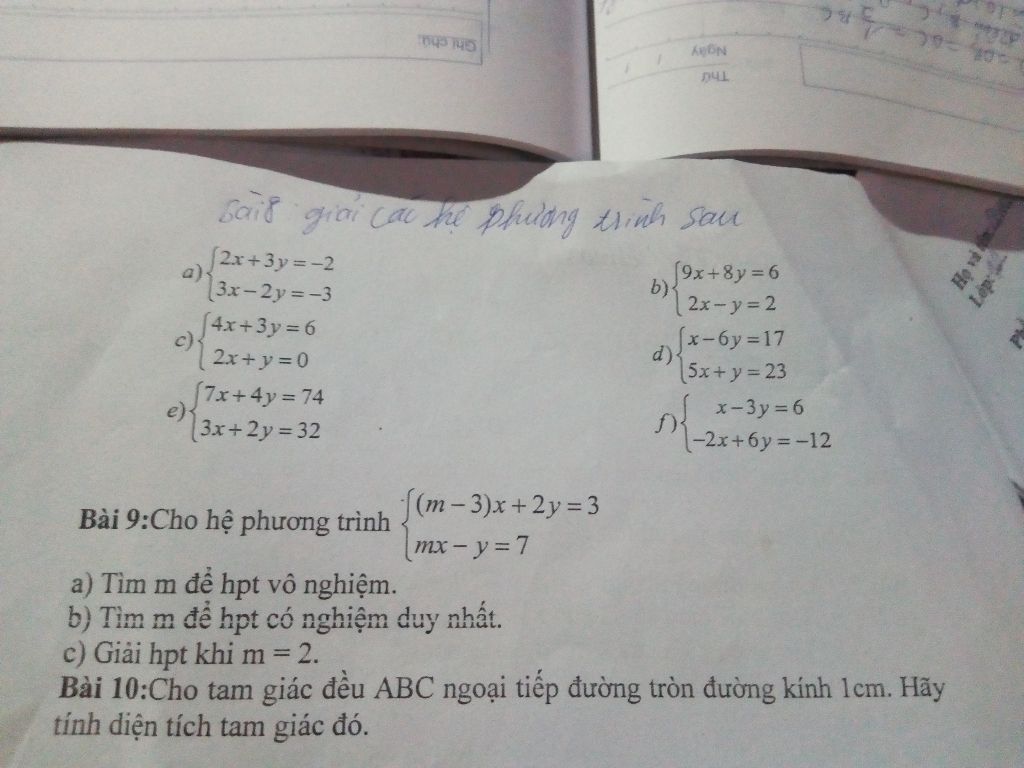 Ghi chú:
Thứ
Ngày
Bài 8: giải các hệ phương trình sau
a) {2x+3y=-2
3x-2y=-3
b) {9x+8y=6
2x-y=2
c) {4x+3y=6
2x+y=0
d) {x-6y=17
5x+y=23
e) {7x+4y=74
3x+2y=32
f) {x-3y=6
-2x+6y=-12
Bài 9:Cho hệ phương trình {(m-3)x+2y=3
mx-y=7
a) Tìm m để hpt vô nghiệm.
b) Tìm m để hpt có nghiệm duy nhất.
c) Giải hpt khi m = 2.
Bài 10:Cho tam giác đều ABC ngoại tiếp đường tròn đường kính 1cm. Hãy
tính diện tích tam giác đó.
Họ và
Lớp: